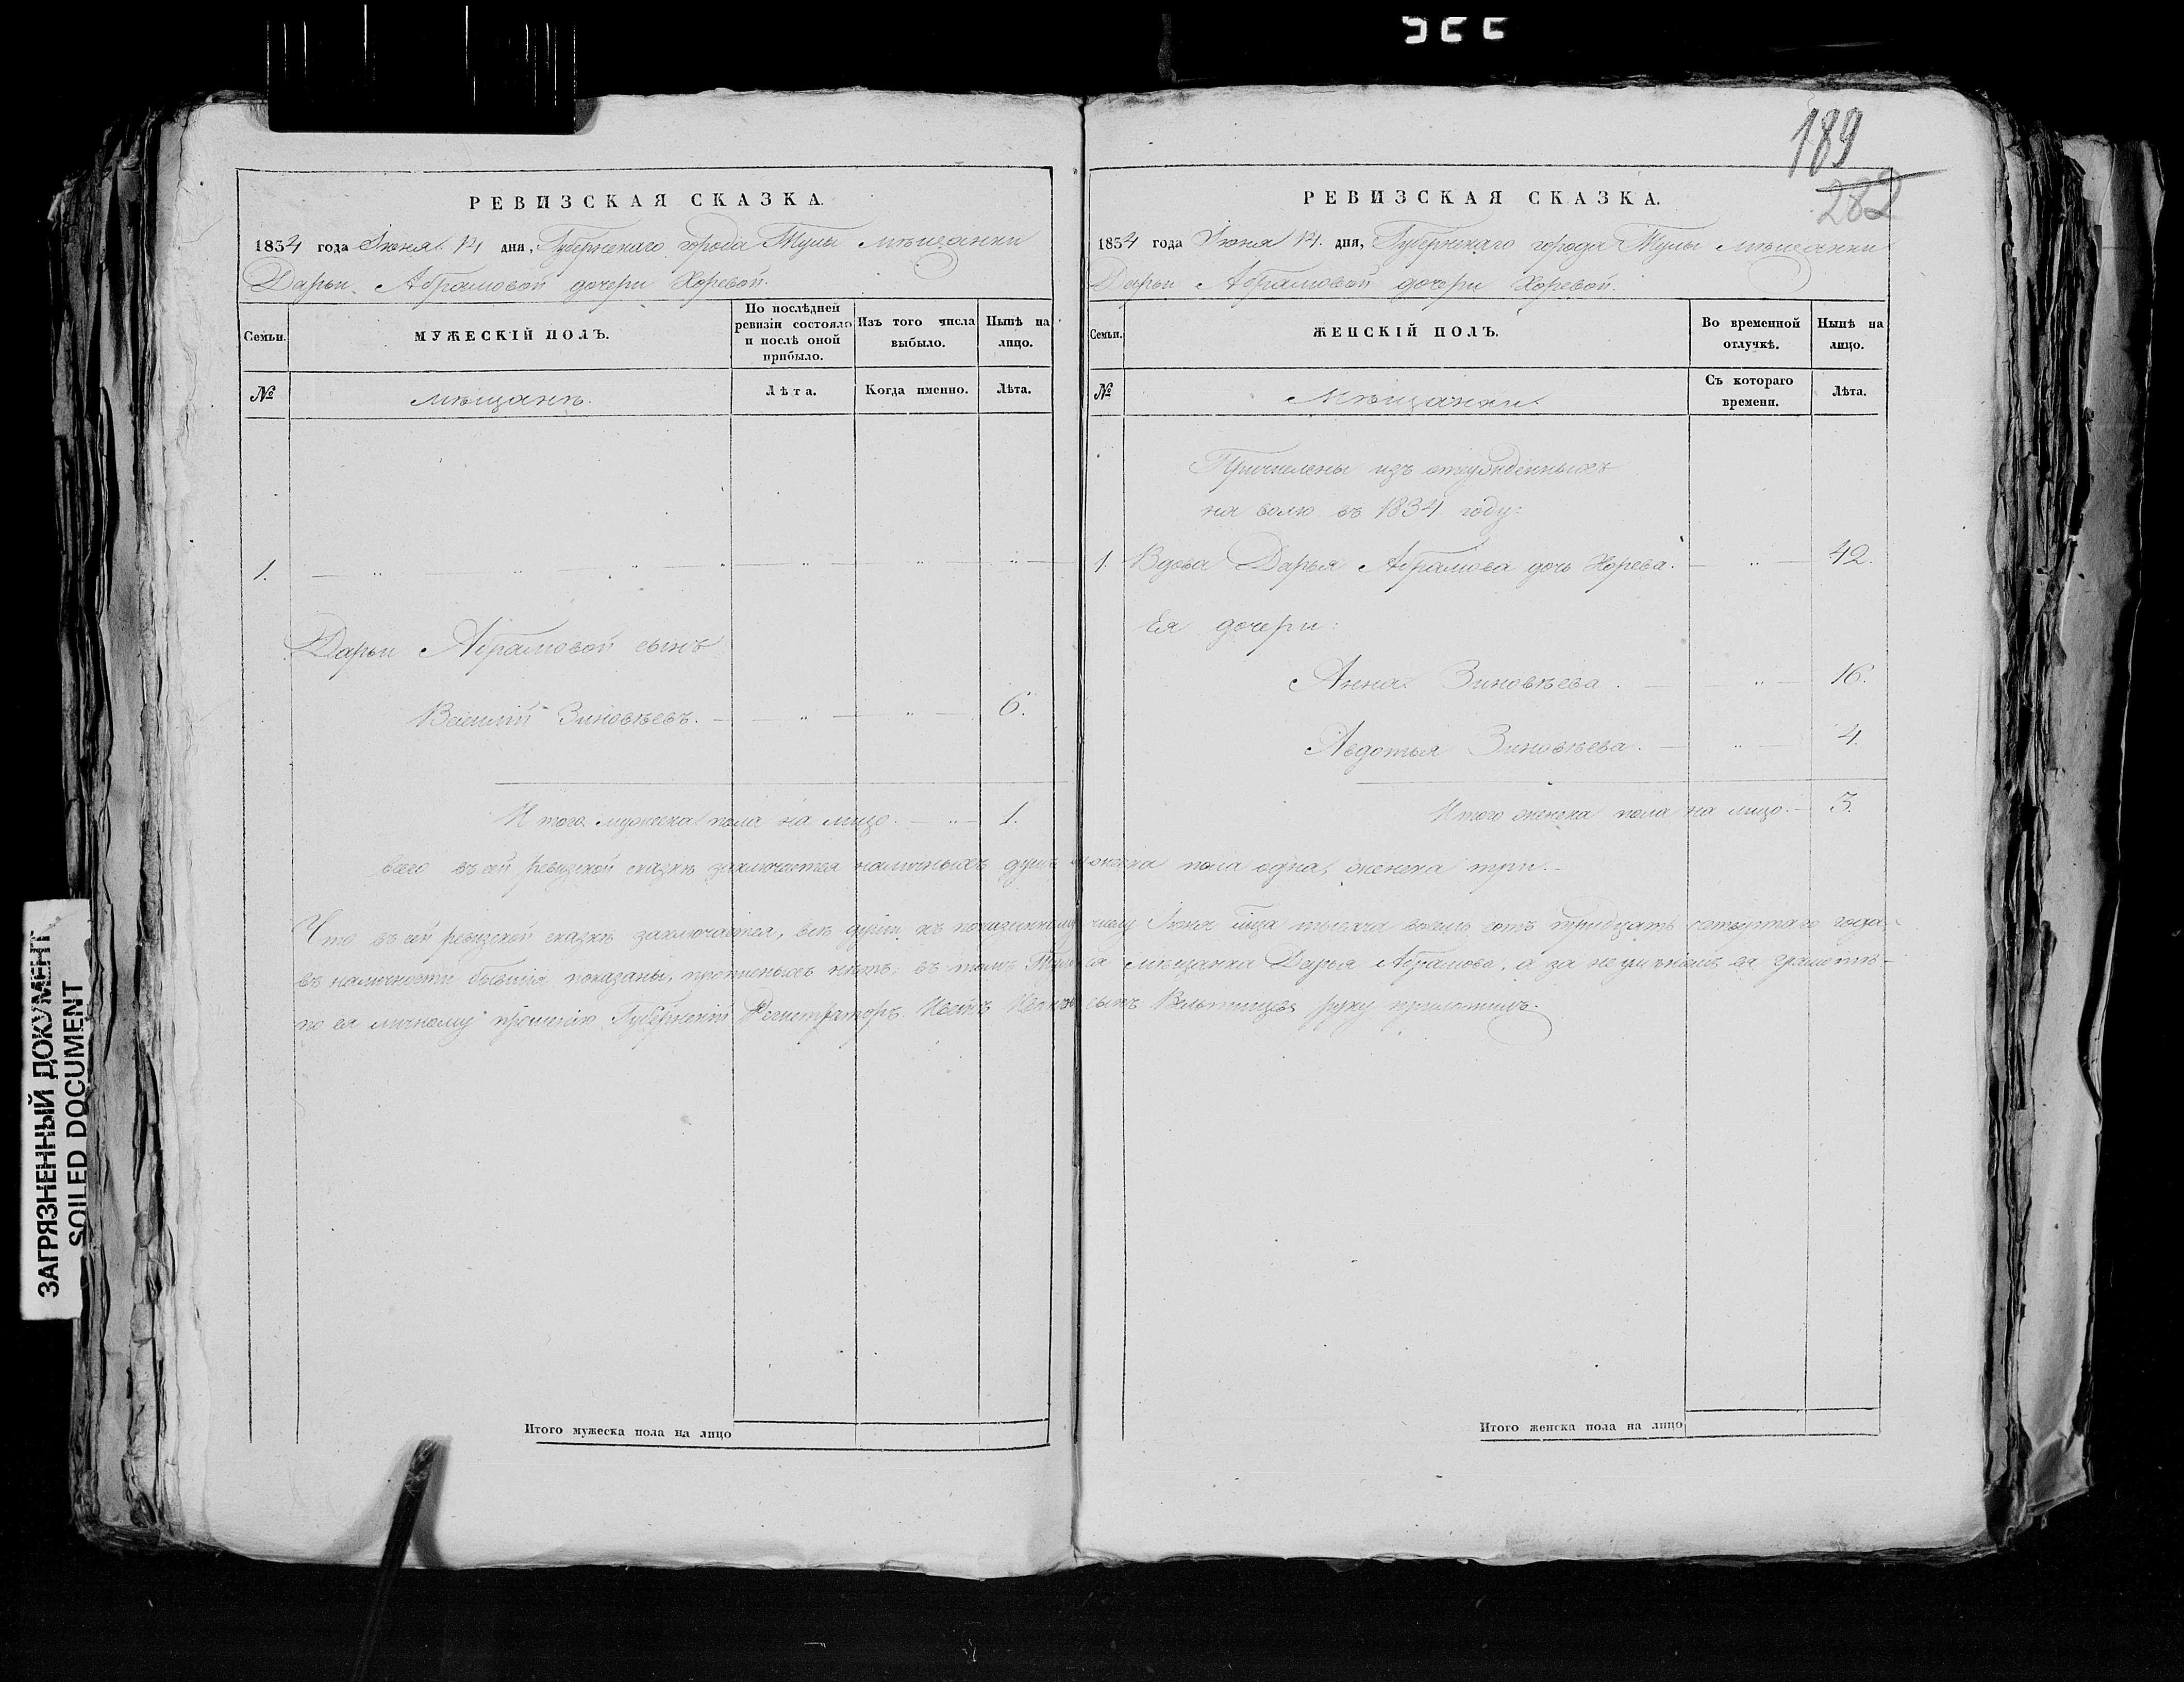 189
282
РЕВИЗСКАЯ СКАЗКА.
1834 года Іюня 14 дня, Губернскаго города Тулы мѣщанки
Дарьи Абрамовой дочери Хоревой.
Семьи.
МУЖЕСКІЙ ПОЛЪ.
По послѣдней ревизіи состояло и послѣ оной прибыло.
Изъ того числа выбыло.
Нынѣ на лицо.
№
мѣщанъ.
Лѣта.
Когда именно.
Лѣта.
1.
Дарьи Абрамовой сынъ
Василій Зиновьевъ. 6.
Итого мужеска пола на лицо. 1.
РЕВИЗСКАЯ СКАЗКА.
1834 года Іюня 14. дня, Губернскаго города Тулы мѣщанки
Дарьи Абрамовой дочери Хоревой.
Семьи.
ЖЕНСКІЙ ПОЛЪ.
Во временной отлучкѣ.
Нынѣ на лицо.
№
Мѣщанки.
Съ котораго времени.
Лѣта.
Причислены изъ отсужденныхъ
на волю въ 1834 году:
1. Вдова Дарья Абрамова дочь Хорева. 42.
Ея дочери:
Анна Зиновьева. 16.
Авдотья Зиновьева. 4.
Итого женска пола на лицо. 3.
Всего въ сей ревизской сказкѣ заключается наличныхъ душъ мужеска пола одна, женска три.
Что въ сей ревизской сказкѣ заключается, всѣ души къ показанному числу Іюня мца тысяча восемь сотъ тридцать четвертаго года
въ наличности бывшія показаны, прописныхъ нѣтъ. въ томъ мѣщанка Дарья Абрамова, а за неумѣніемъ ея грамотѣ
по ея личному прошенію Губернскій Регистраторъ сынъ руку приложилъ.
Итого мужеска пола на лицо
Итого женска пола на лицо
ЗАГРЯЗНЕННЫЙ ДОКУМЕНТ
SOILED DOCUMENT